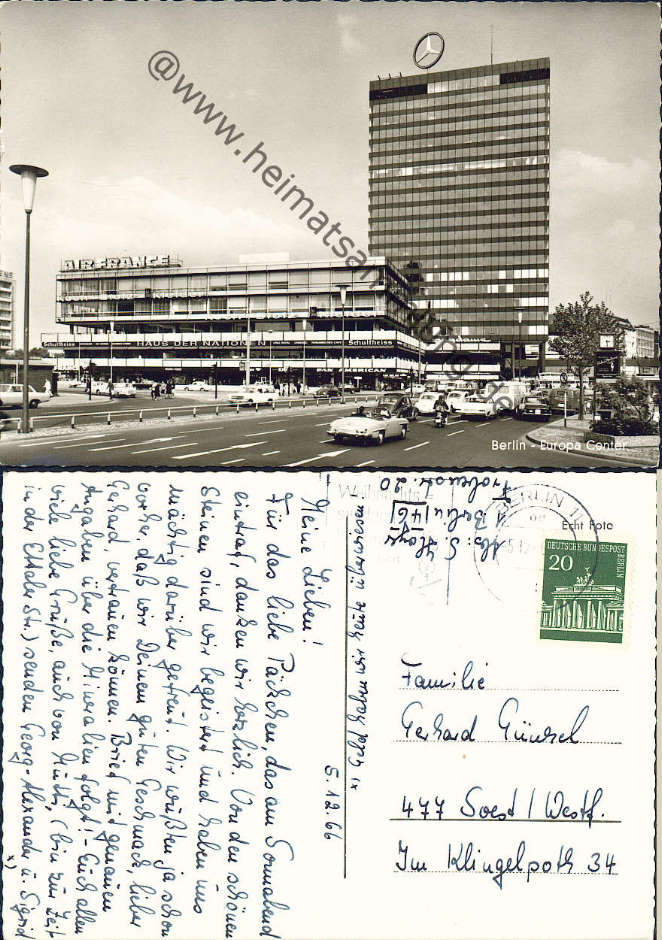 @www.heimatsammlung.de
AIR FRANCE
HAUS DER NATIONEN
Schultheiss
Schultheiss
PAN AMERICAN
Berlin - Europa Center
Meine Lieben!
5.12.66
Für das liebe Päckchen, das am Sonnabend
eintraf, danken wir herzlich. Von den schönen
Steinen sind wir begeistert und haben uns
mächtig darüber gefreut. Wir wußten ja schon
vorher, daß wir Deinem guten Geschmack, lieber
Gerhard, vertrauen können. Brief mit genauen
Angaben über die Mineralien folgt! – Euch allen
viele liebe Grüße, auch von Mutti, (bin zur Zeit
in der Ettaler Str.) senden Georg-Alexander u. Sigrid
x)
x) Geld haben wir heute
Abs: S.
1 Berlin 46
20
BERLIN 11
Echt Foto
DEUTSCHE BUNDESPOST
BERLIN
20
Familie
Gerhard Günzel
477 Soest / Westf.
Im Klingelpoth 34